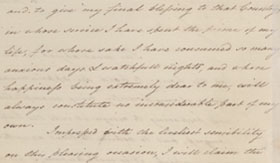 and, to give my final blessing to that Country
in whose service I have spent the prime of my
life, for whose sake I have consumed so many
anxious days & watchfull nights, and whose
happiness being extremely dear to me, will
always constitute no inconsiderable part of my
own.
Impressed with the liveliest sensibility
on this pleasing occasion, I will claim the